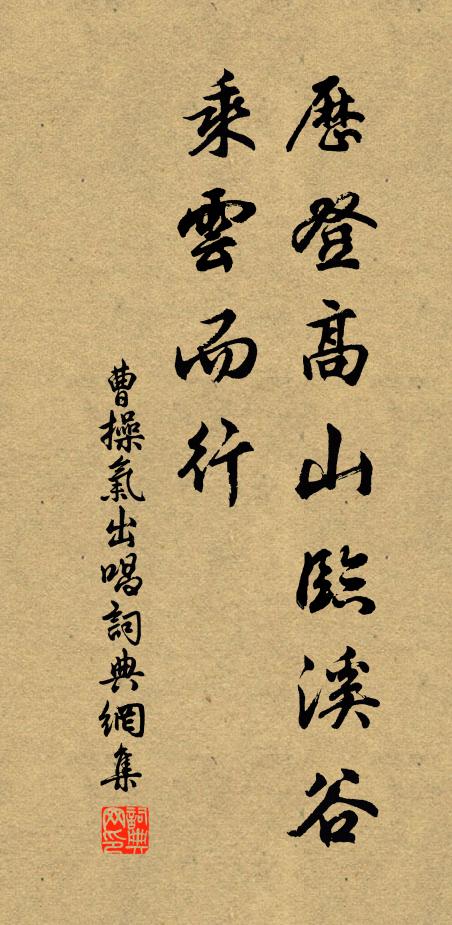 歷登高山臨溪谷
乘雲而行
曹操氣出唱詞典網集
詞典网印